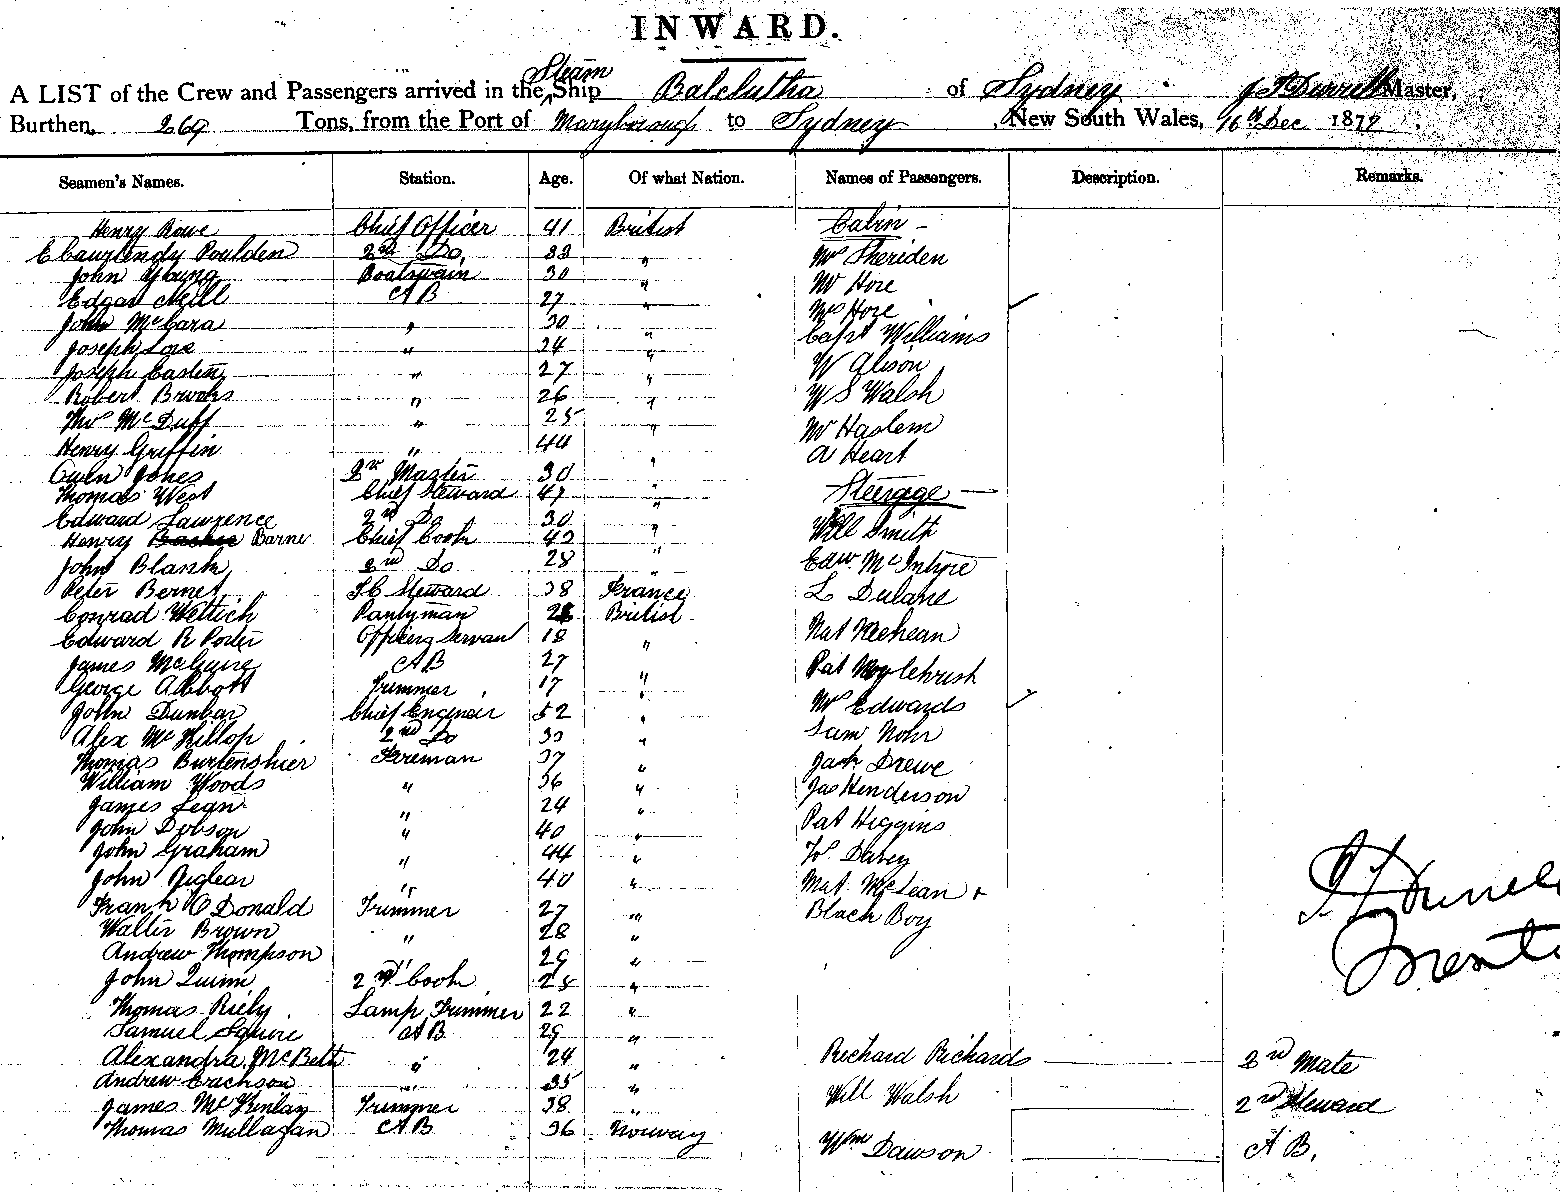 INWARD.
Steam
A LIST of the Crew and Passengers arrived in the Ship Balclutha of Sydney Master,
Burthen, 269 Tons, from the Port of Maryborough to Sydney, New South Wales, 16th Dec 1877
Seamen's Names. Station. Age. Of what Nation. Names of Passengers. Description. Remarks.
Henry Rowe Chief Officer 41 British Cabin
Poulden 2nd Do. 33 " Mr Sheriden
John Young Boatswain 30 " Mr Hore
Edgar Neill AB 27 " Mrs Hore
John McCara " 30 " Capt Williams
Joseph " 34 " W Alison
Joseph " 27 " W S Walsh
Robert " 26 " Mr Haslem
Thos McDuff " 25 " A Heart
Henry Griffin " 44 "
Owen Jones Master 30 " Steerage
Thomas West Chief Steward 47 " Will Smith
Edward Lawrence 2nd Do 30 " Edw. McIntyre
Henry Barne Chief Cook 40 " L Dulane
John Blank 2nd Do 28 "
Peter Bernet Steward 38 France
Conrad Wettich Pantryman British Nat
Edward R Porter Officers Servan 18 " Pat
James McGuire AB 27 " Mr Edwards
George Abbott Trimmer 17 " Sam Nohr
John Dunbar Chief Engineer 52 " Jack Drewe
Alex McKillop 2nd Do " Jas Henderson
Thomas Burtenshier Fireman 37 " Pat Higgins
William Woods " 36 " W. Davey
James Lean " 24 " Mat. McLean +
John Dobson " 40 " Black Boy
John Graham " 44 "
John " 40 "
Frank O Donald Trimmer 27 "
Walter Brown " 28 "
Andrew Thompson " 29 "
John Quinn 2nd Cook 25 "
Thomas Riely Lamp Trimmer 22 "
Samuel Squire AB 29 "
Alexandra McBeth " 24 " Richard Richards 2nd Mate
Andrew Erickson " 35 " Will Walsh 2nd Steward
James McKinlay Trimmer 38 "
Thomas Mullagan AB 36 Norway Wm Dawson A B.